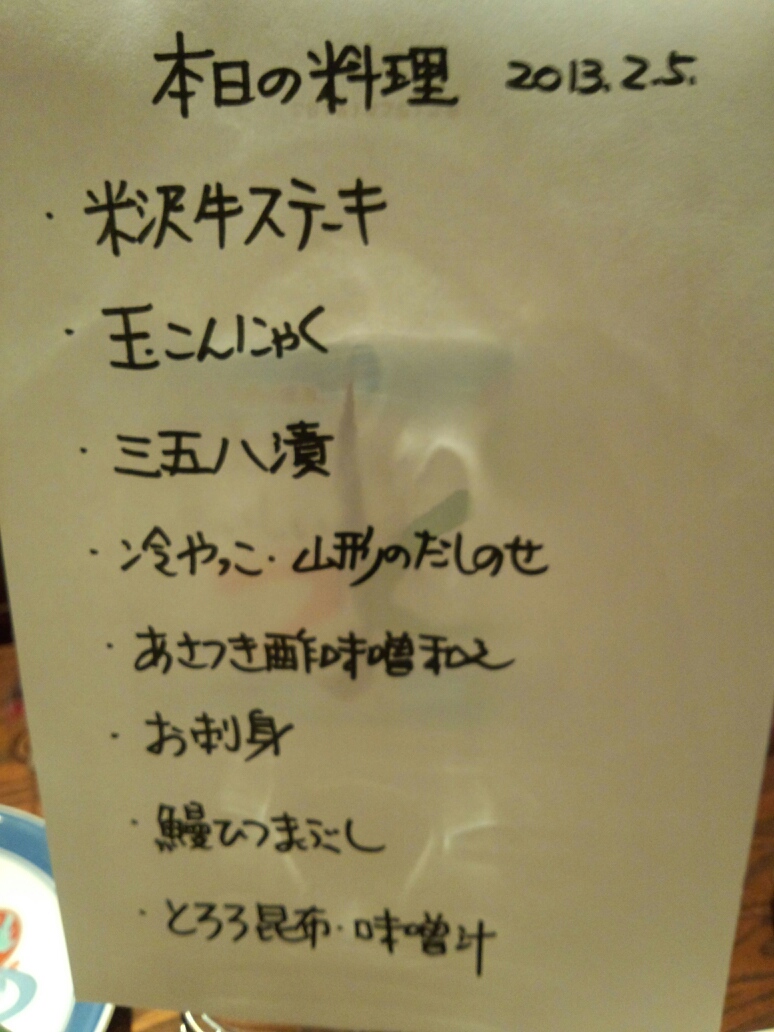 本日の料理 2013.2.5.
・米沢牛ステーキ
・玉こんにゃく
・三五八漬
・冷やっこ・山形のだしのせ
・あさつき酢味噌和え
・お刺身
・鰻ひつまぶし
・とろろ昆布・味噌汁